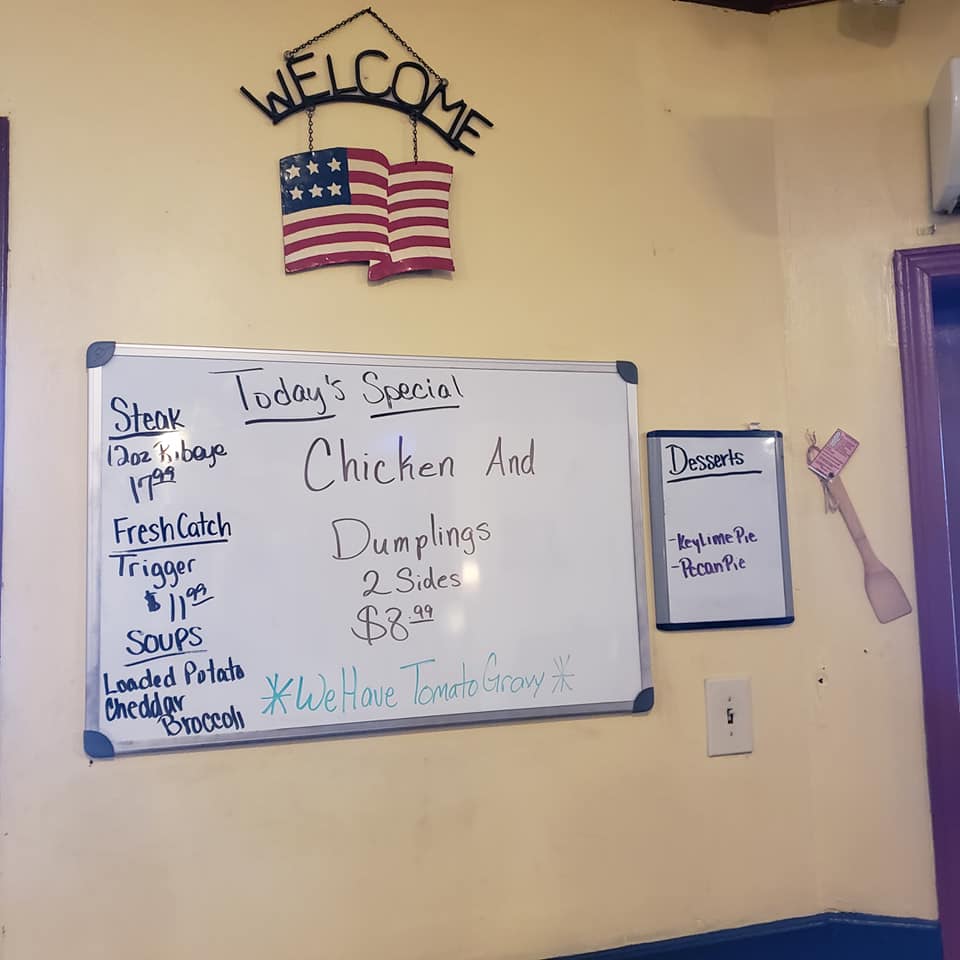 WELCOME
Today's Special
Steak
12oz Ribeye
17.99
Fresh Catch
Trigger
$11.99
SOUPS
Loaded Potato
Cheddar
Broccoli
Chicken And
Dumplings
2 Sides
$8.99
*We Have Tomato Gravy*
Desserts
-Key Lime Pie
-Pecan Pie